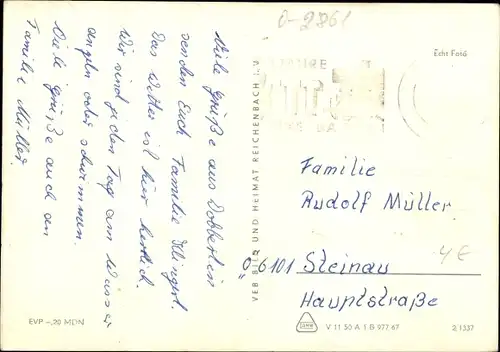 0-2861
Echt Foto
Viele Grüße aus Dobbertin
senden Euch Familie Klingert.
Das Wetter ist hier herrlich.
Wir sind jeden Tag am Wasser
angeln oder schwimmen.
Viele Grüße auch an
Familie Müller.
VEB BILD UND HEIMAT REICHENBACH I. V.
Familie
Rudolf Müller
06101 Steinau
Hauptstraße
4 €
EVP -,20 MDN
V 11 50 A 1 B 977 67
2/1337